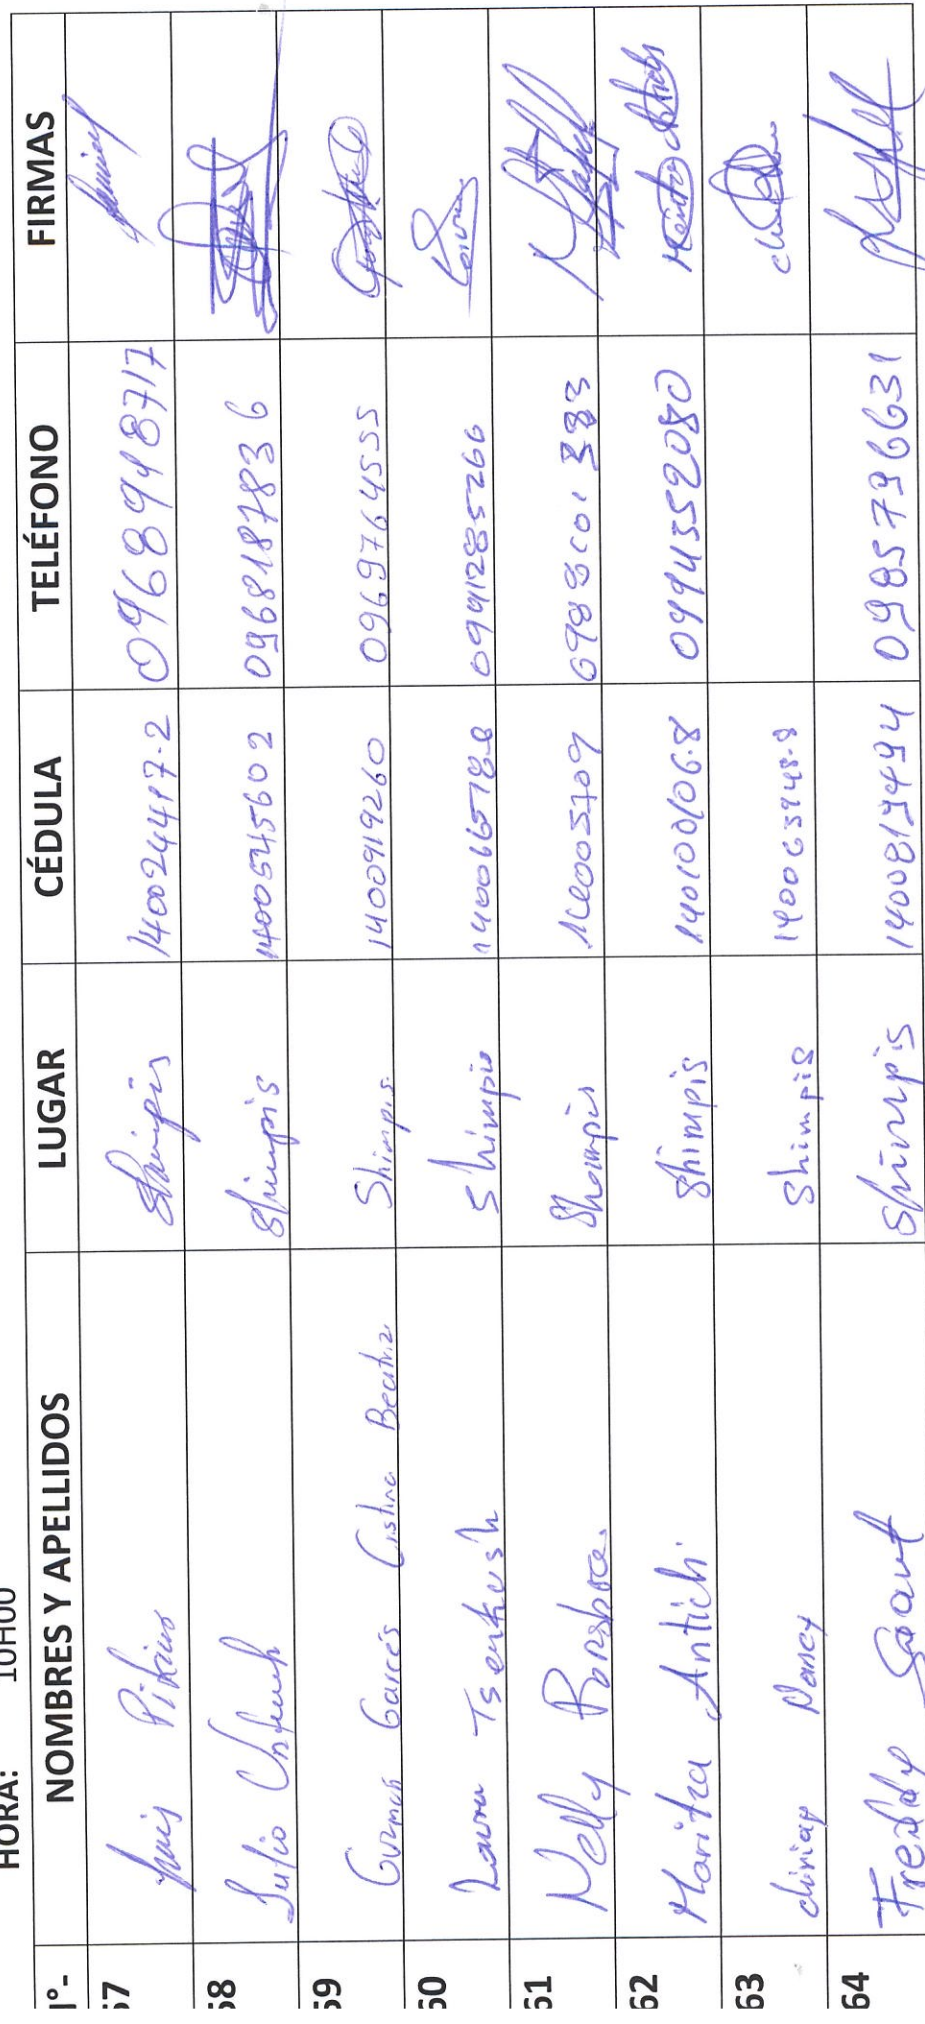 HORA: 10H00
N°- NOMBRES Y APELLIDOS LUGAR CÉDULA TELÉFONO FIRMAS
57 Luis Pikiur Shimpis 140024417-2 0968948717
58 Julio Shimpis 1400545602 0968187836
59 Guzmán Garcés Cristina Beatriz Shimpis. 1400919260 0969764555
60 Laura Tsenkush Shimpis 140066578-8 0991285266 Laura
61 Nelly Shaimpis
62 Maritza Antich. Shimpis 140100106-8 0994552080 Maritza Antich
63 chiriap Nancy Shimpis 140063948-8
64 Freddy Saant Shimpis 1400817494 0985796631